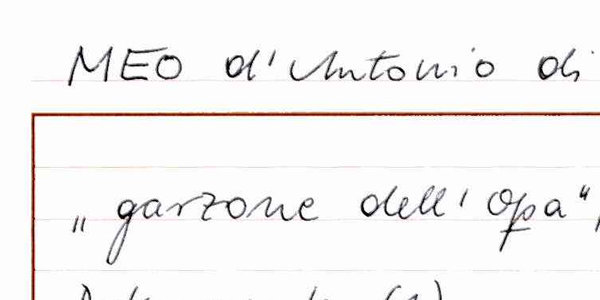 MEO d'Antonio di
„garzone dell'Opa“,